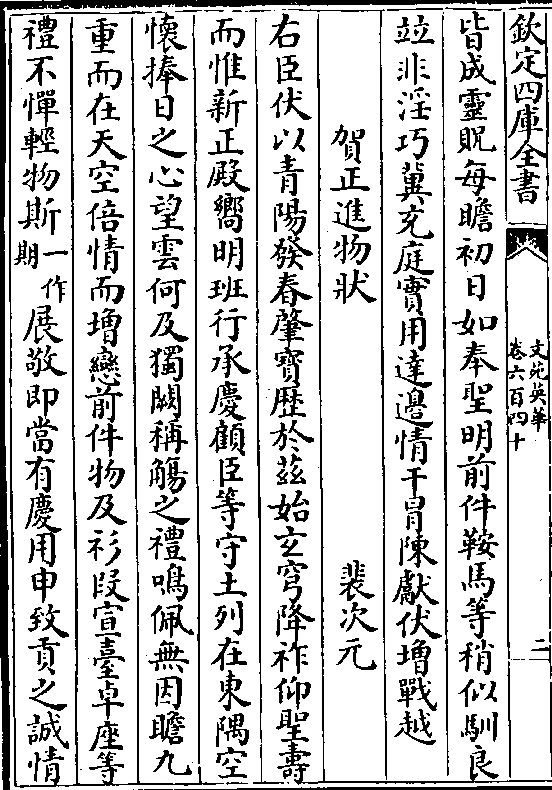 欽定四庫全書
文苑英華
卷六百四十
二
皆成靈貺每瞻初日如奉聖明前件鞍馬等稍似馴良
竝非淫巧冀充庭實用達邉情干冒陳獻伏增戰越
賀正進物狀 裴次元
右臣伏以青陽發春肇寶歴於兹始玄穹降祚仰聖壽
而惟新正殿嚮明班行承慶顧臣等守土列在東隅空
懷捧日之心望雲何及獨闕稱觴之禮鳴佩無因瞻九
重而在天空倍情而增戀前件物及衫段宣臺卓座等
禮不憚輕物斯一作期展敬即當有慶用申致貢之誠情